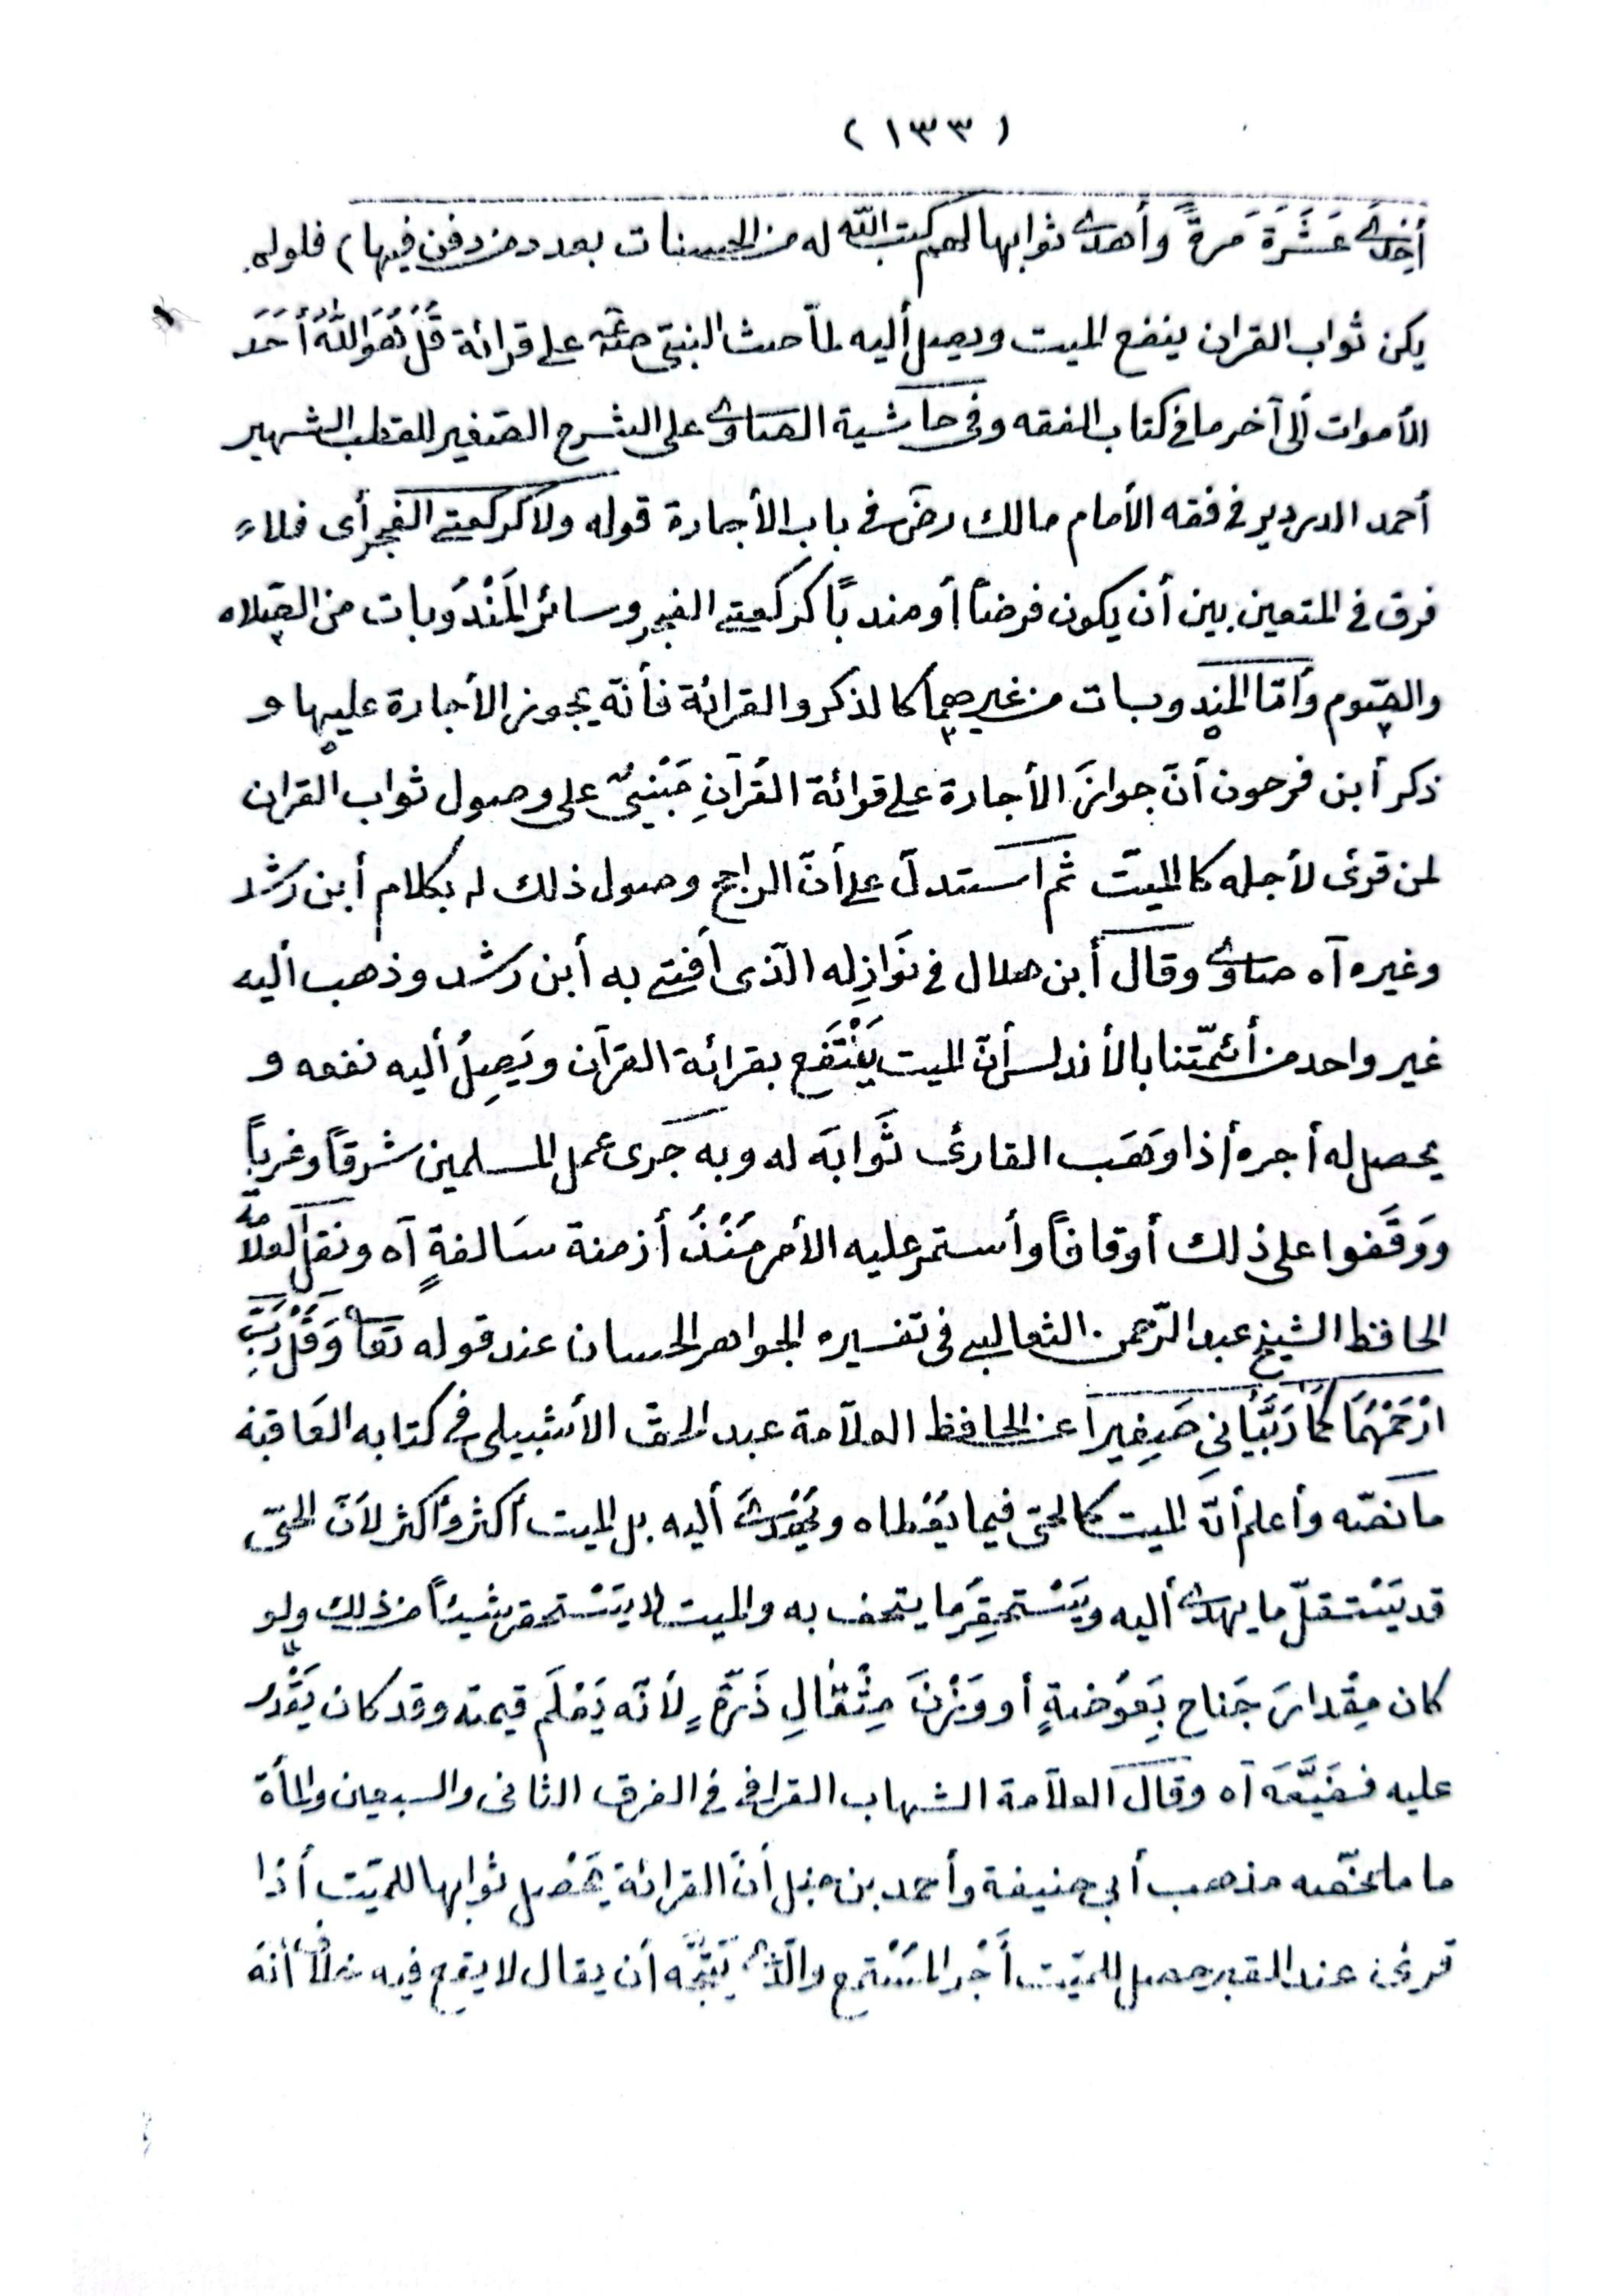 (١٣٣)
أِحْدَى عَشَرَةَ مَرةً وأهدى ثوابها لهم كتب الله له من الحسنات بعدد من دفن فيها) فلولم
يكن ثواب القران ينفع الميت ويصل أليه لمّا حث النبيّ صعم على قرائة قُلْ هُوَ اللّٰهُ أَحَد
الأموات ألى آخر ما فى كتاب الفقه وفى حاشية الصاوى على الشرح الصّغير للقطب الشهير
أحمد الدردير فى فقه الأمام مالك رضى فى باب الأجارة قوله ولا كركعتى الفجر أى فلا
فرق فى المتعين بين أن يكون فرضاً أو مندباً كركعتى الفجر وسائر المَنْدُوبات من الصّلاه
والصّوم وأمّا المندوبات من غيرهما كالذكر والقرائة فأنّه يجوز الأجارة عليها و
ذكر أبن فرحون أنّ جوازَ الأجارة على قرائة القُرآنِ مَبْنِىٌّ على وصول ثواب القران
لمن قرئ لأجله كالميّت ثم أستدلّ على أنّ الراجح وصول ذلك له بكلام أبن رشد
وغيره آه صاوى وقال أبن هلال فى نَوَازِله الّذى أفتى به أبن رشد وذهب أليه
غير واحد من أئمّتنا بالأندلس أنّ الميت يَنْتَفَع بقرائة القرآن ويَصِلُ أليه نفعه و
يحصل له أجره أذا وَهَب القارئ ثَوابَه له وبه جَرى عمل المسلمين شرقاً وغرباً
ووَقَفوا على ذلك أوقافاً وأستمر عليه الأمر مُنْذُ أزمنة سَالفةٍ آه ونقل العلاّمة
الحافظ الشيخ عبد الرّحمن الثعالبى فى تفسيره الجواهر الحسان عند قوله تعا وَقُلْ رَبِّ
ارْحَمْهُمَا كَمَا رَبَّيَانِى صَغِيراً عن الحافظ العلاّمة عبد الحقّ الأشبيلى فى كتابه العَاقبة
ما نصّه وأعلم أنّ الميت كالحىّ فيما يُعْطاه ويُهْدَى أليه بل الميت أكثر وأكثر لأنّ الحىّ
قد يَسْتقلّ ما يهدى أليه ويَسْتحقِرُ ما يتحف به والميت لا يَسْتحقر شيئاً من ذلك ولو
كان مِقْدارَ جَناح بَعوُضةٍ أو وَزْنَ مِثْقالِ ذَرّةٍ لأنّه يَعْلَم قيمته وقد كان يَقْدر
عليه فضَيَّعَه آه وقال العلاّمة الشهاب القرافى فى الفرق الثانى والسبعين والمأة
ما ملخّصه مذهب أبى حنيفة وأحمد بن حنبل أنّ القرائة يَحْصل ثوابها للميّت أذا
قرئ عند القبر حصل للميّت أَجْر المُسْتمع والّذى يَتّجه أن يقال لا يقع فيه خلاف أنّه